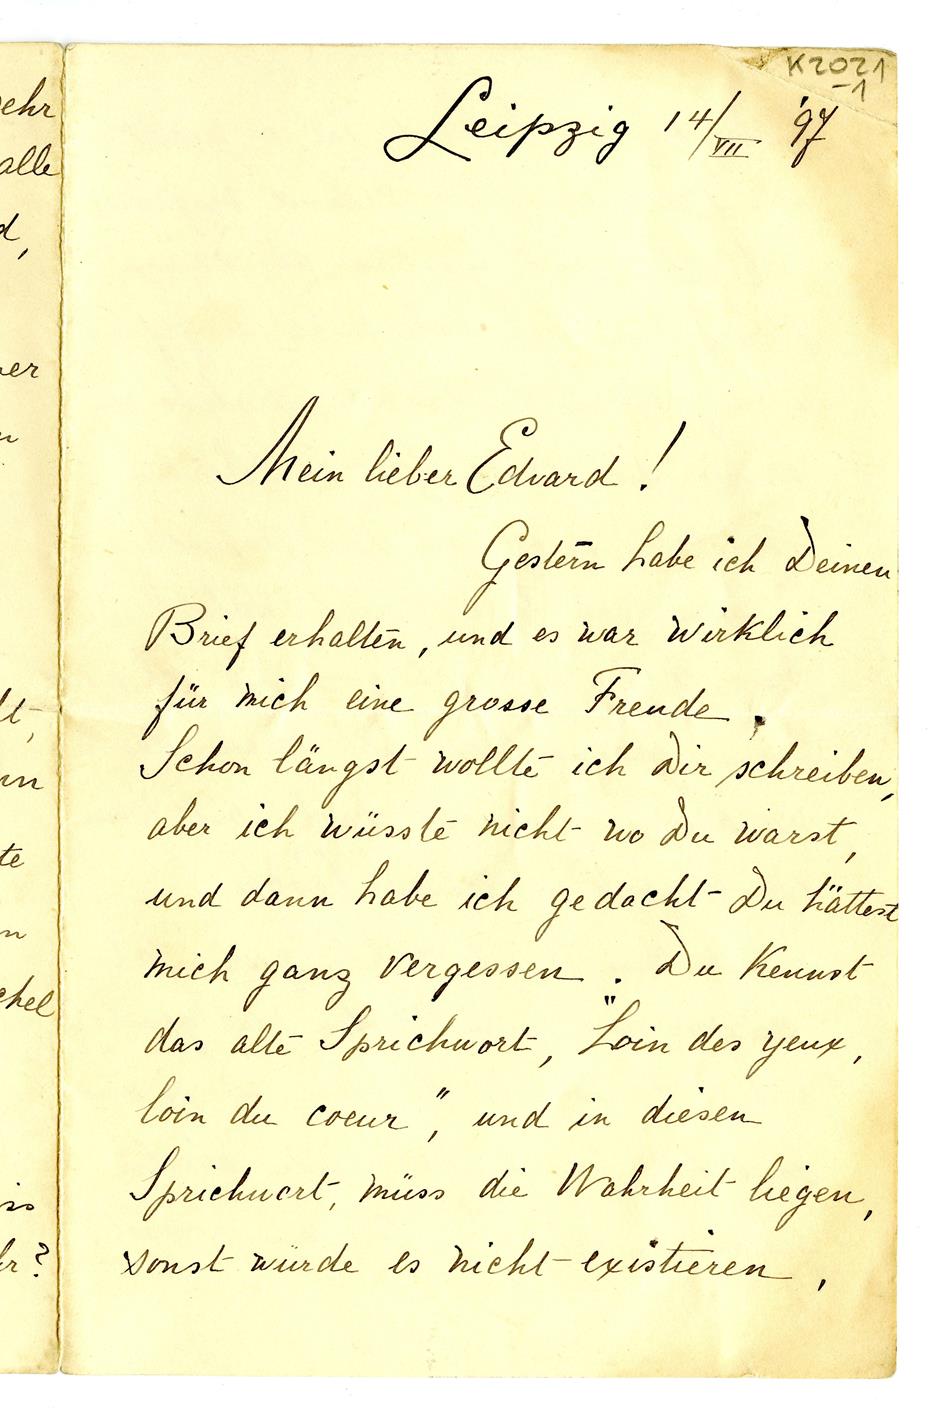 K2021
-1
Leipzig 14/VII '97
Mein lieber Edvard!
Gestern habe ich Deinen
Brief erhalten, und es war wirklich
für mich eine grosse Freude.
Schon längst wollte ich Dir schreiben,
aber ich wüsste nicht wo Du warst,
und dann habe ich gedacht Du hättest
mich ganz vergessen. Du kennst
das alte Sprichwort, "Loin des yeux,
loin du coeur", und in diesen
Sprichwort, müss die Wahrheit liegen,
sonst würde es nicht existieren,
ehr
alle
d,
er
n
lt,
te
n
chel
iss
hr?